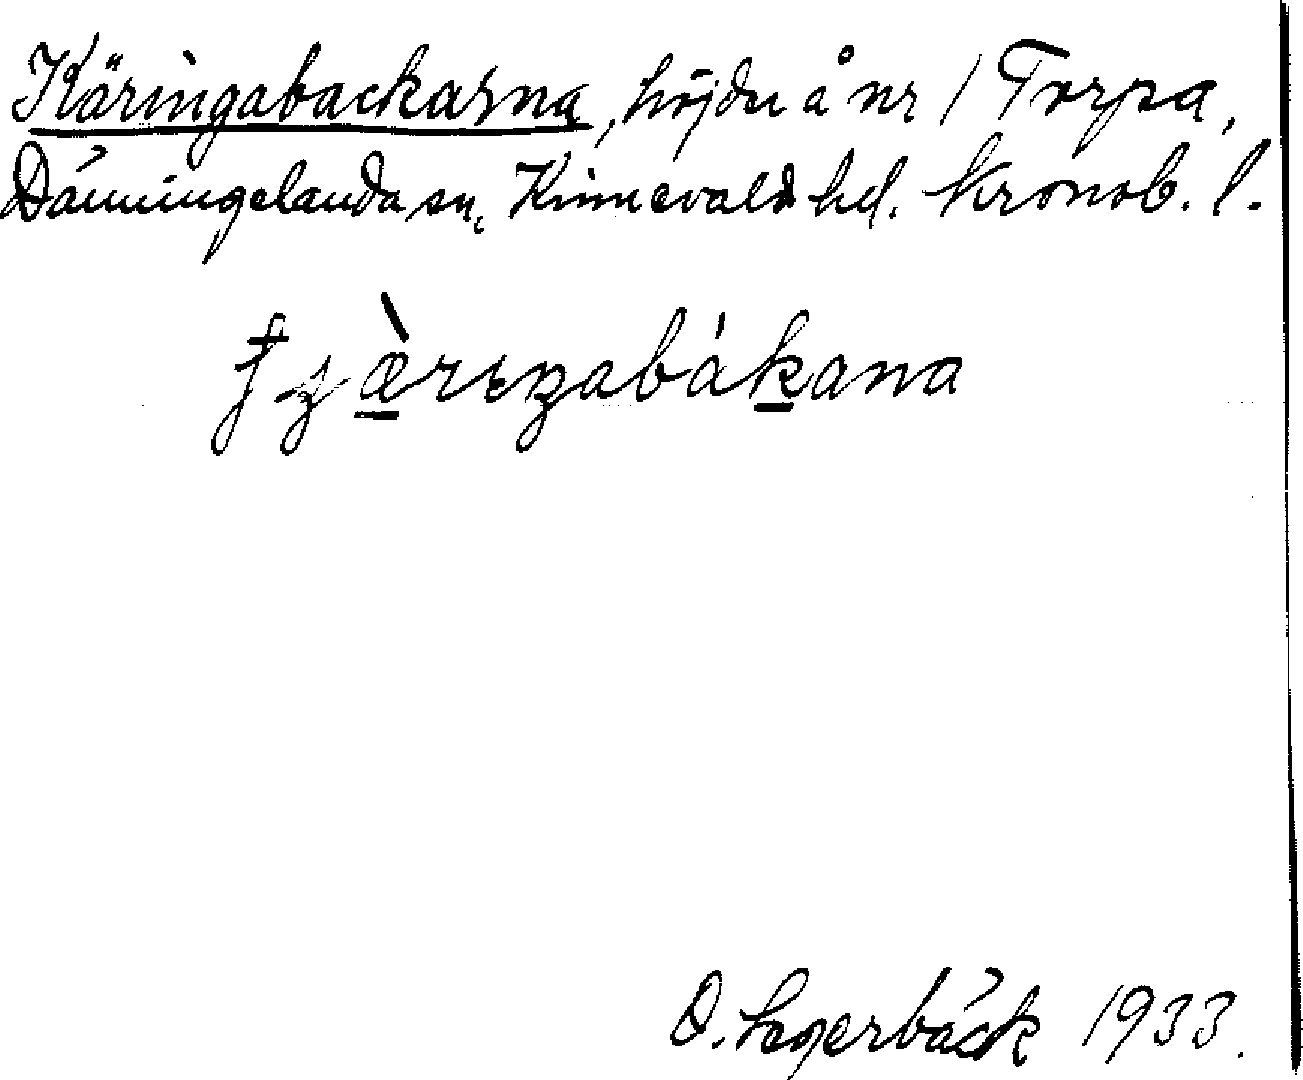 Käringabackarna, höjder å nr 1 Torpa,
Dänningelanda sn, Kinnevalds hd. Kronob. l.
O. Lagerbäck 1933.